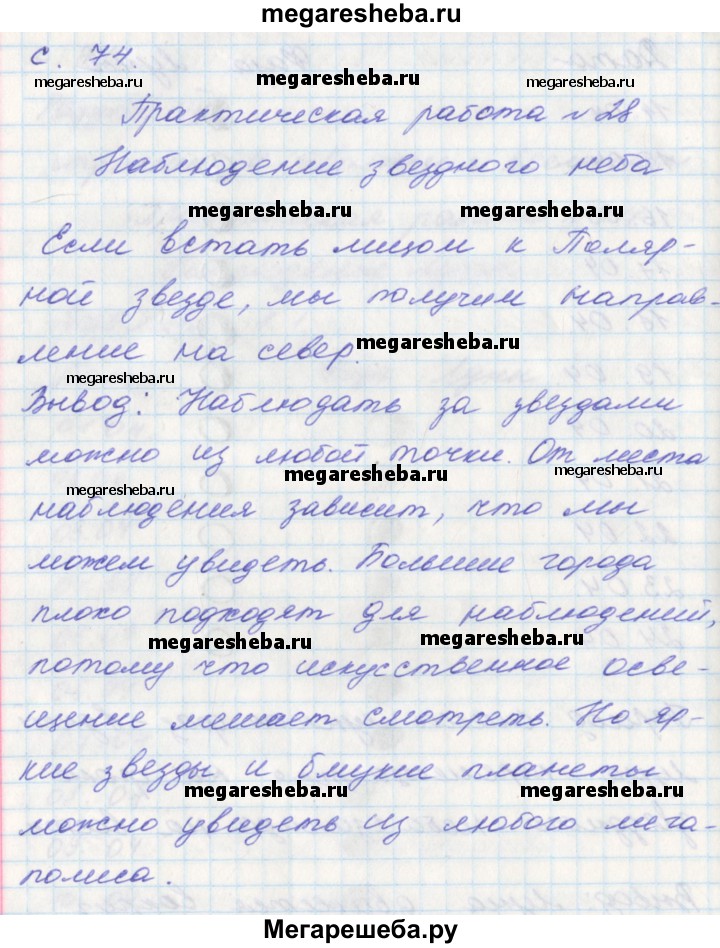 megaresheba.ru
с. 74.
megaresheba.ru megaresheba.ru megaresheba.ru
Практическая работа №28
Наблюдение звездного неба
megaresheba.ru megaresheba.ru
Если встать лицом к Поляр-
ной звезде, мы получим направ-
ление на север.
megaresheba.ru
megaresheba.ru megaresheba.ru
Вывод: Наблюдать за звездами
можно из любой точки. От места
megaresheba.ru megaresheba.ru
megaresheba.ru
наблюдения зависит, что мы
можем увидеть. Большие города
плохо подходят для наблюдений,
megaresheba.ru megaresheba.ru
потому что искусственное осве-
щение мешает смотреть. Но яр-
кие звезды и блукие планеты
megaresheba.ru megaresheba.ru
можно увидеть из любого мега-
полиса.
Мегарешеба.ру